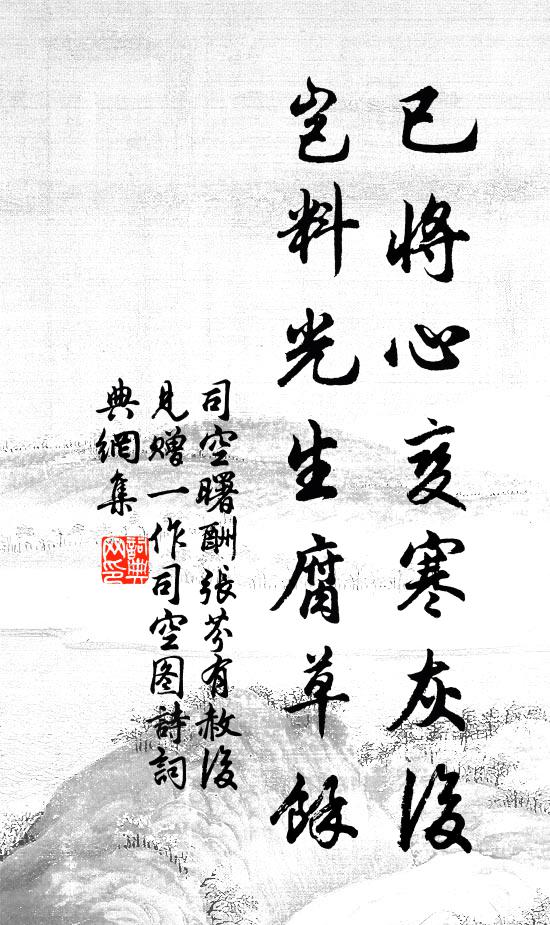 已將心變寒灰後
豈料光生腐草餘
司空曙酬張芬有赦後
見贈一作司空图詩詞
典網集
詞典
网印